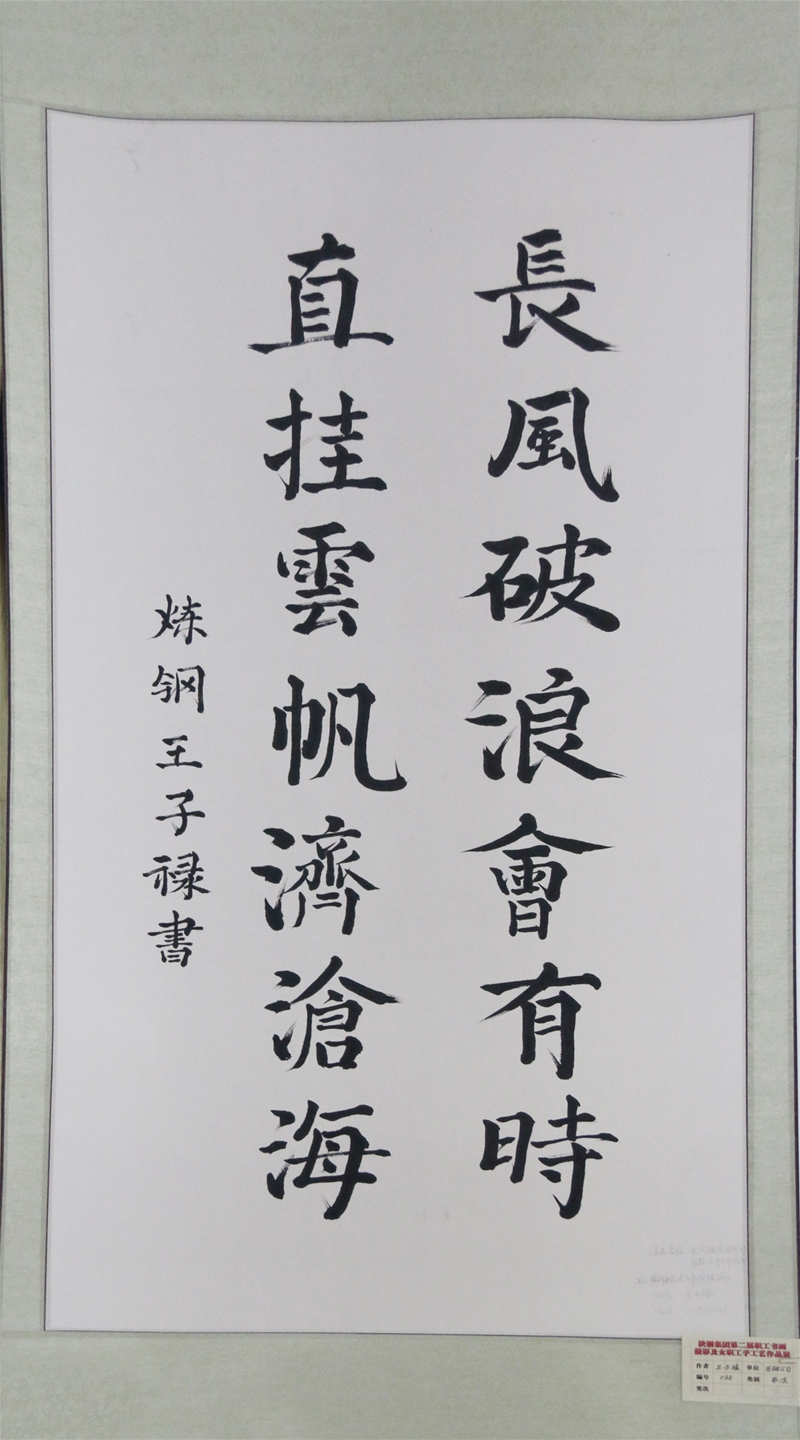 長風破浪會有時
直挂雲帆濟滄海
炼钢王子禄書
陕钢集团第二届职工书画
摄影及女职工手工艺作品展
作者 王子禄 单位
编号 038 类别 书法
奖次